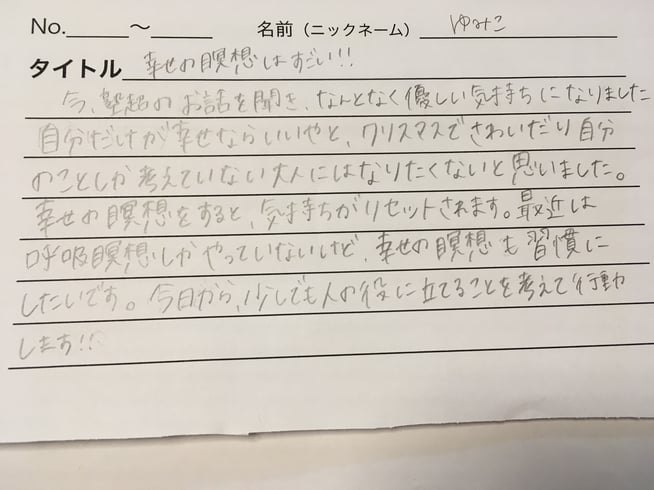 No.＿＿～＿＿ 名前（ニックネーム） ゆみこ
タイトル 幸せの瞑想はすごい!!
今、塾超のお話を聞き、なんとなく優しい気持ちになりました
自分だけが幸せならいいやと、クリスマスでさわいだり自分
のことしか考えていない大人にはなりたくないと思いました。
幸せの瞑想をすると、気持ちがリセットされます。最近は
呼吸瞑想しかやっていないけど、幸せの瞑想も習慣に
したいです。今日から、少しでも人の役に立てることを考えて行動
します!!